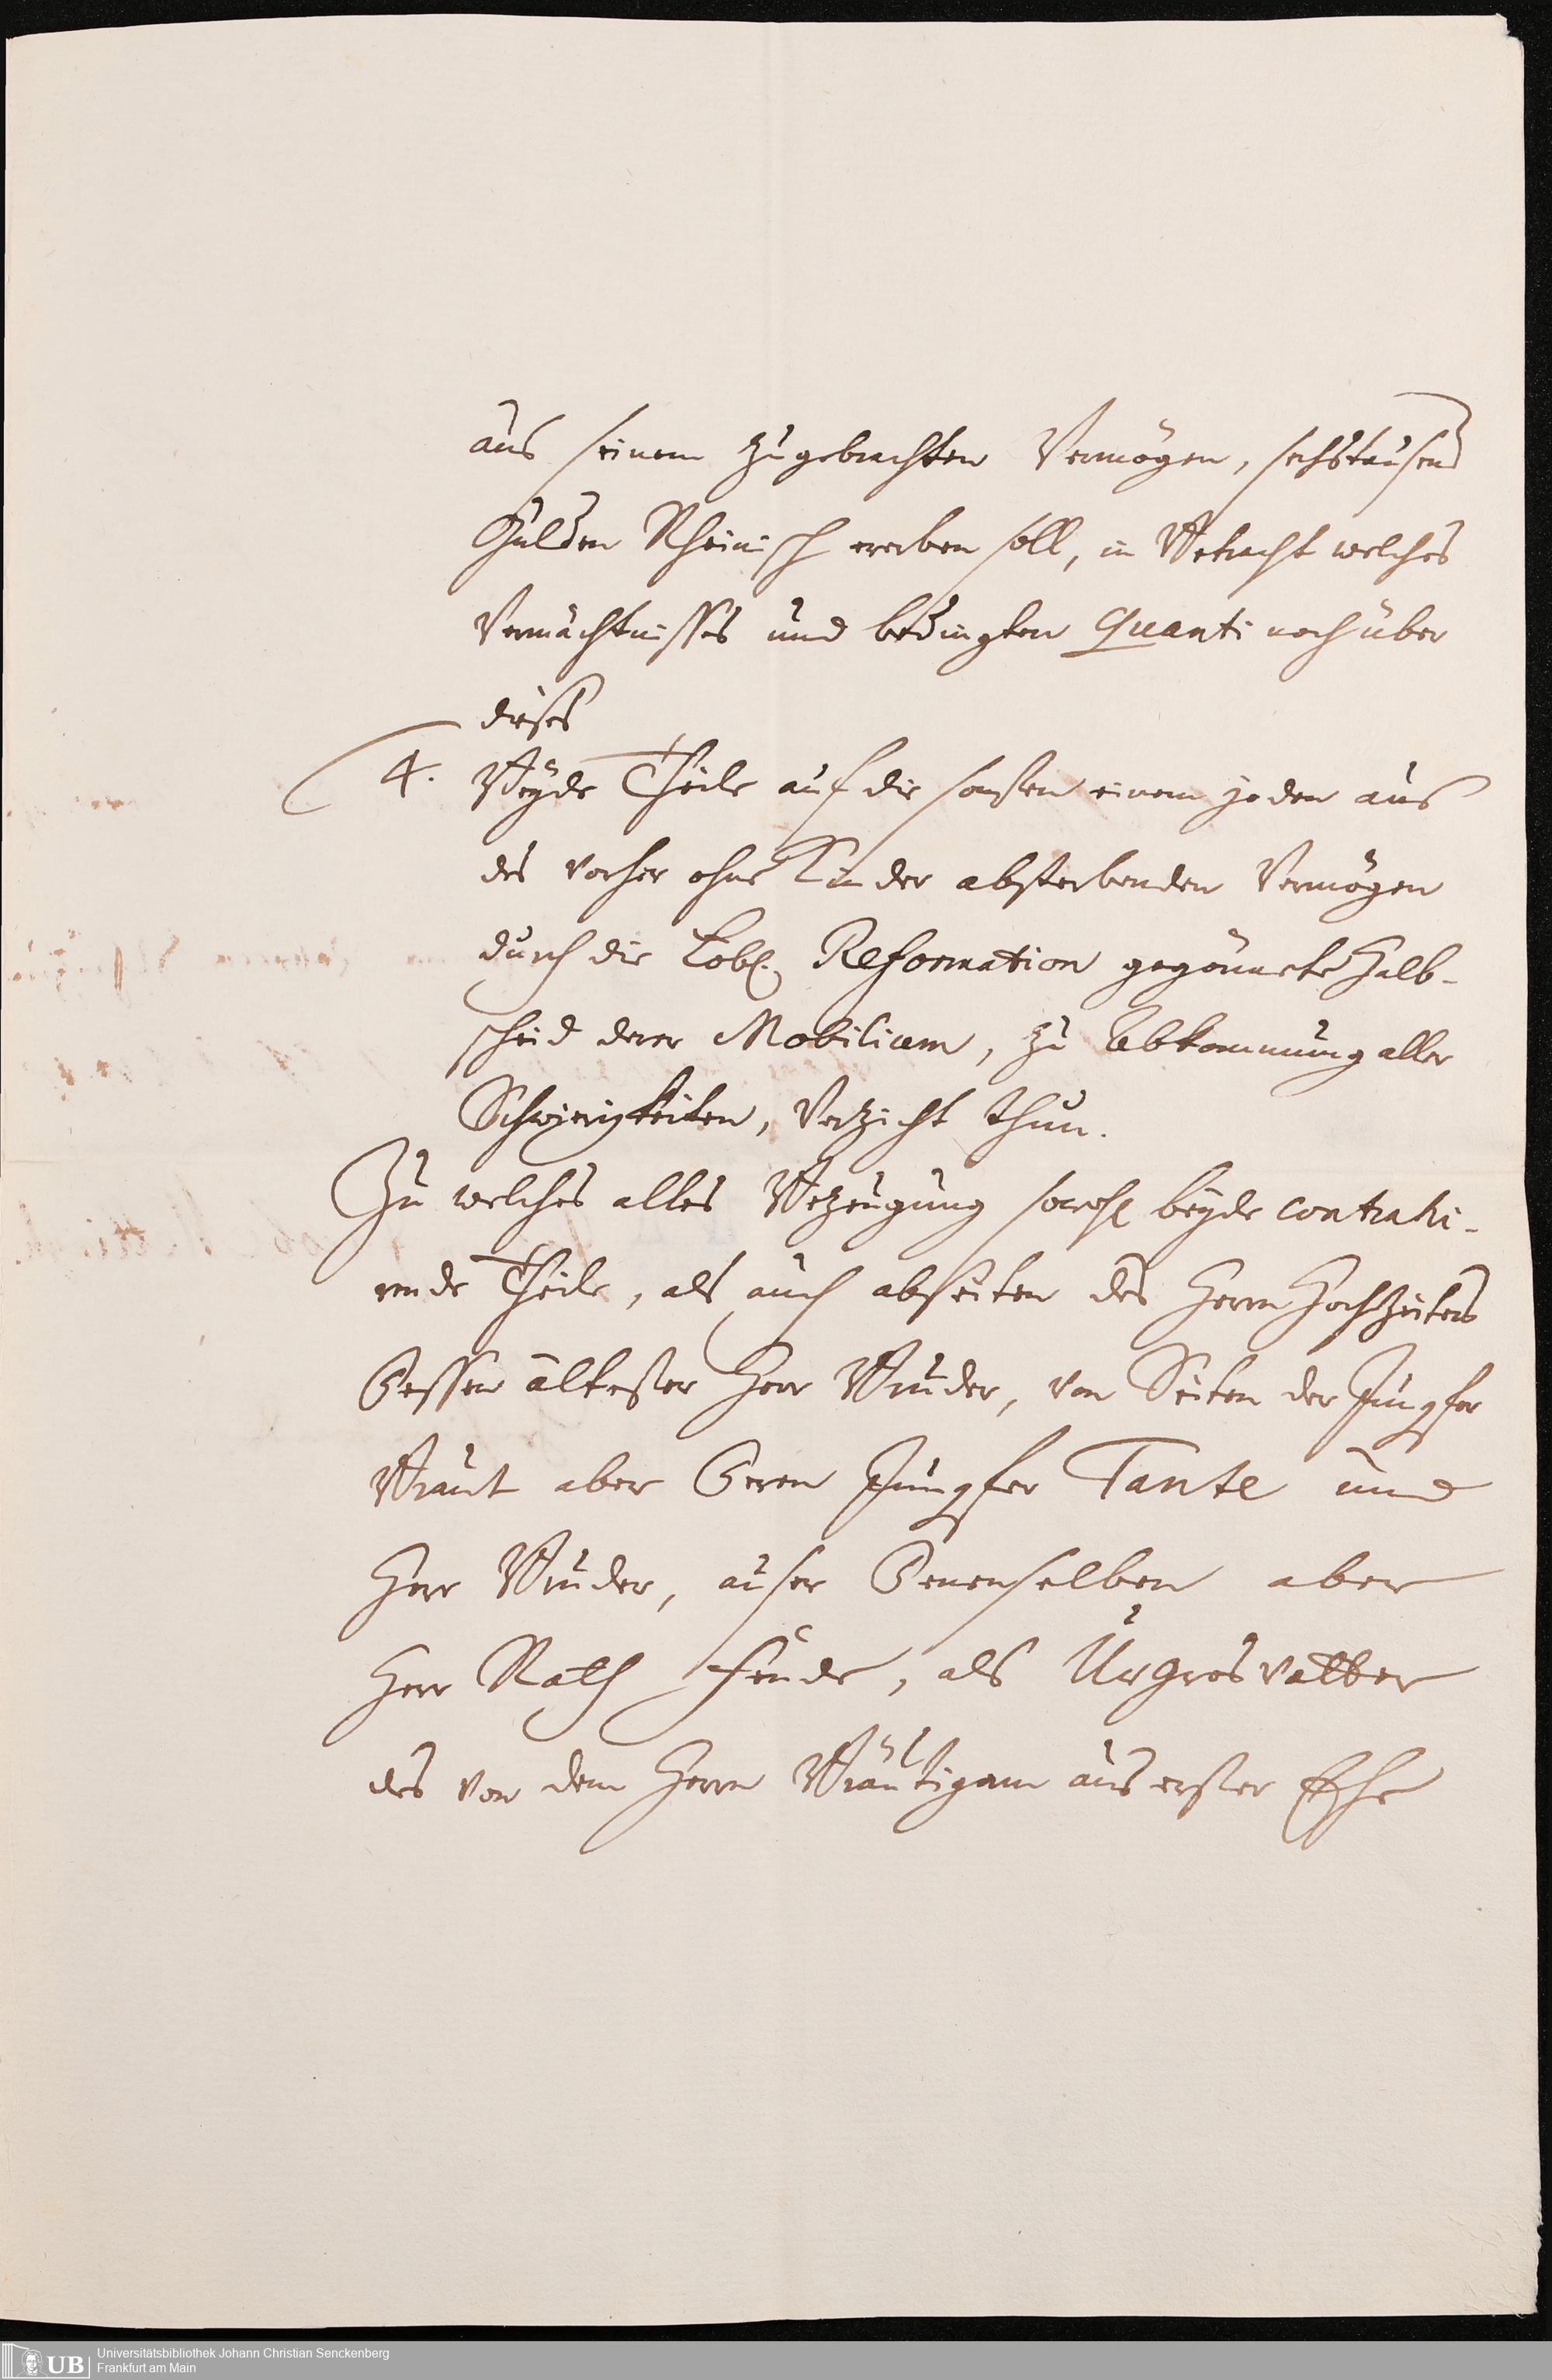 aus seinem zugebrachten Vermögen, sechstausend
Gulden Rheinisch ererben soll, in Betracht welches
Vermächtnisses und bedingten Quanti noch über
dieses
4. Beyde Theile auf die sonsten einem jeden aus
des vorher ohne Kinder absterbenden Vermögen
durch die Löbl. Reformation gegönnete Halb-
scheid derer Mobilien, zu Abkommung aller
Schwierigkeiten, Verzicht thun.
Zu welches alles Bezeugung sowohl beyde contrahi-
rende Theile, als auch abseiten des Herrn Hochzeiters
Dessen ältester Herr Bruder, von Seiten der Jungfer
Braut aber Deren Jungfer Tante und
Herr Bruder, auser Denenselben aber
Herr Rath Hende, als Urgrosvatter
des von dem Herrn Bräutigam aus erster Ehe
Universitätsbibliothek Johann Christian Senckenberg
UB Frankfurt am Main